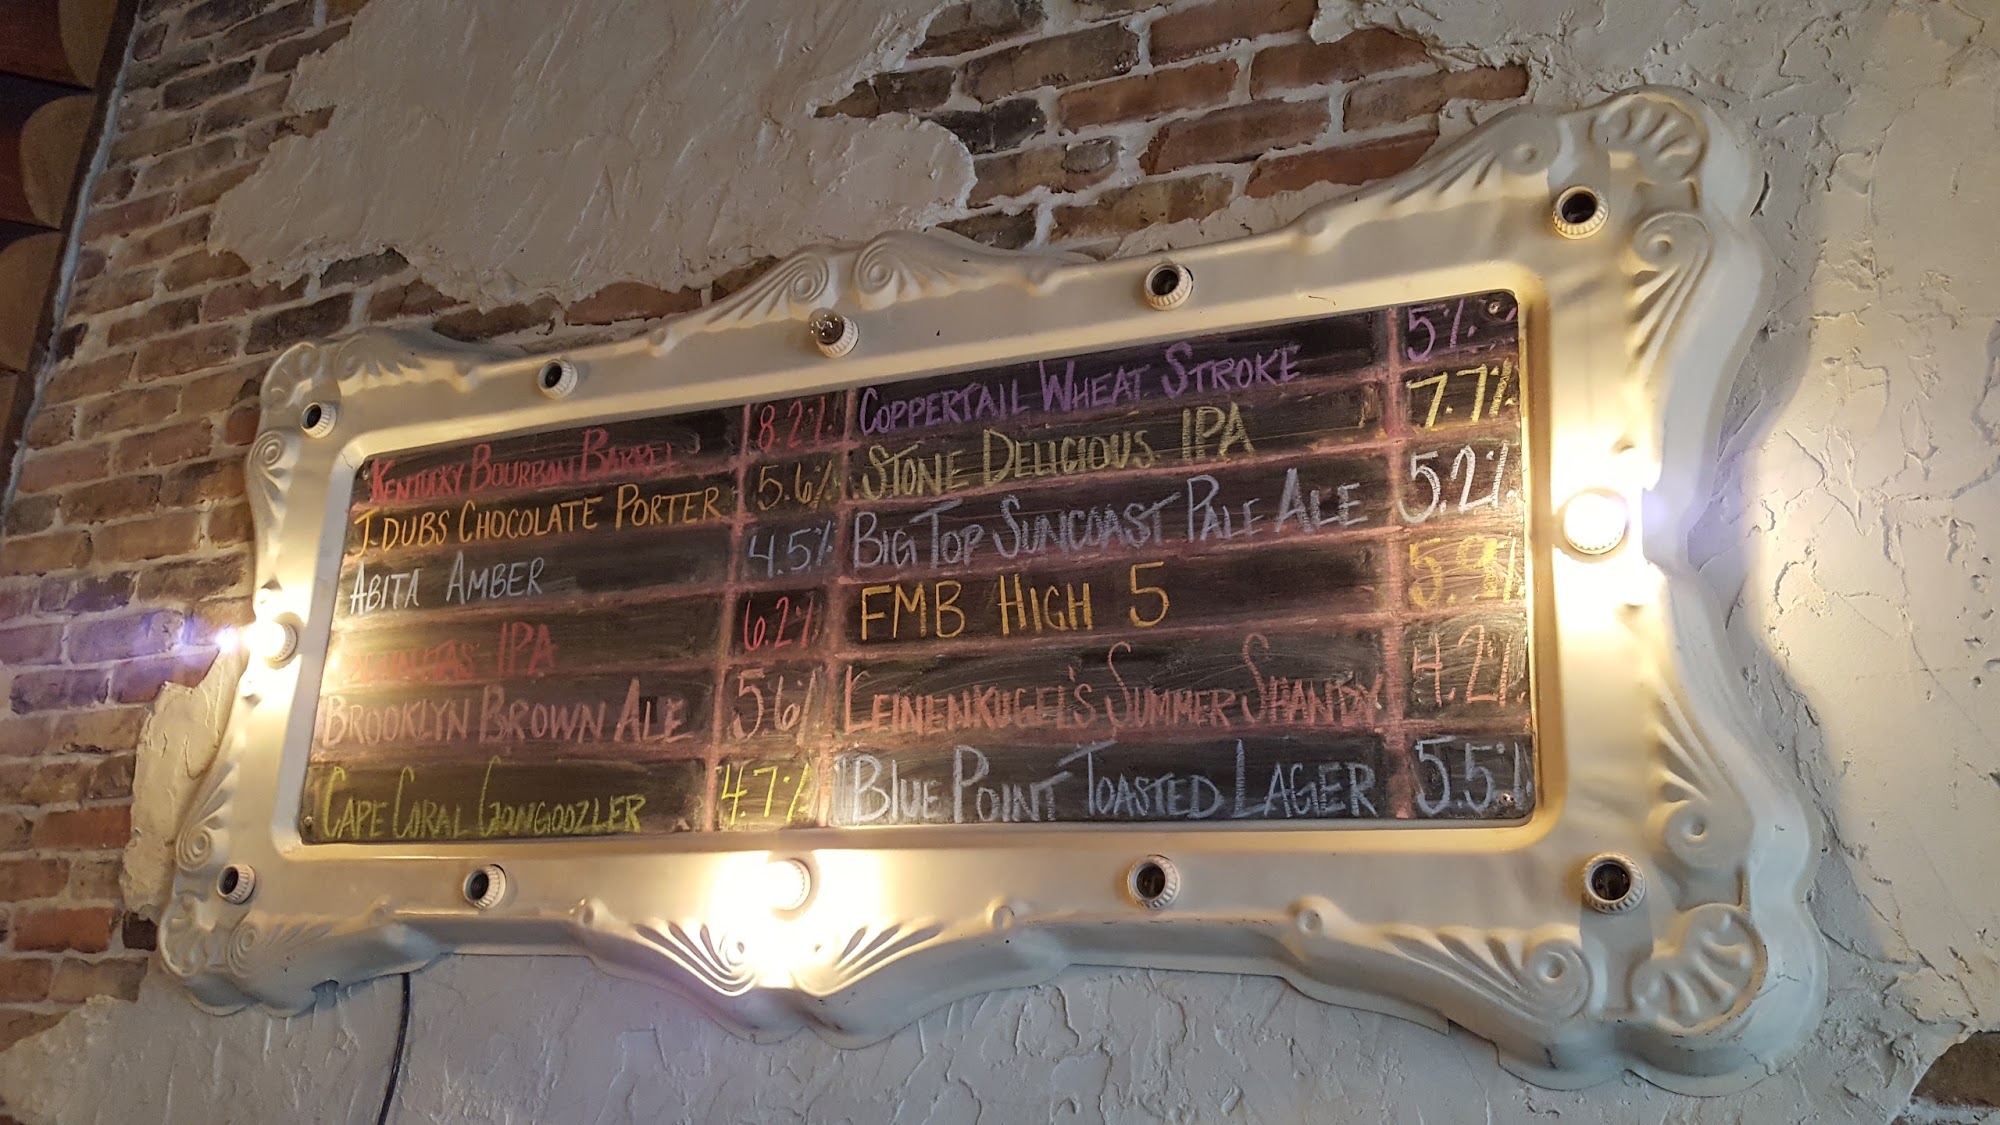 KENTUCKY BOURBON BARREL 8.2%
J.DUBS CHOCOLATE PORTER 5.6%
ABITA AMBER 4.5%
IPA 6.2%
BROOKLYN BROWN ALE 5.6%
CAPE CORAL GONGOOZLER 4.7%
COPPERTAIL WHEAT STROKE 5%
STONE DELICIOUS IPA 7.7%
BIG TOP SUNCOAST PALE ALE 5.2%
FMB HIGH 5 5.9%
LEINENKUGEL'S SUMMER SHANDY 4.2%
BLUE POINT TOASTED LAGER 5.5%